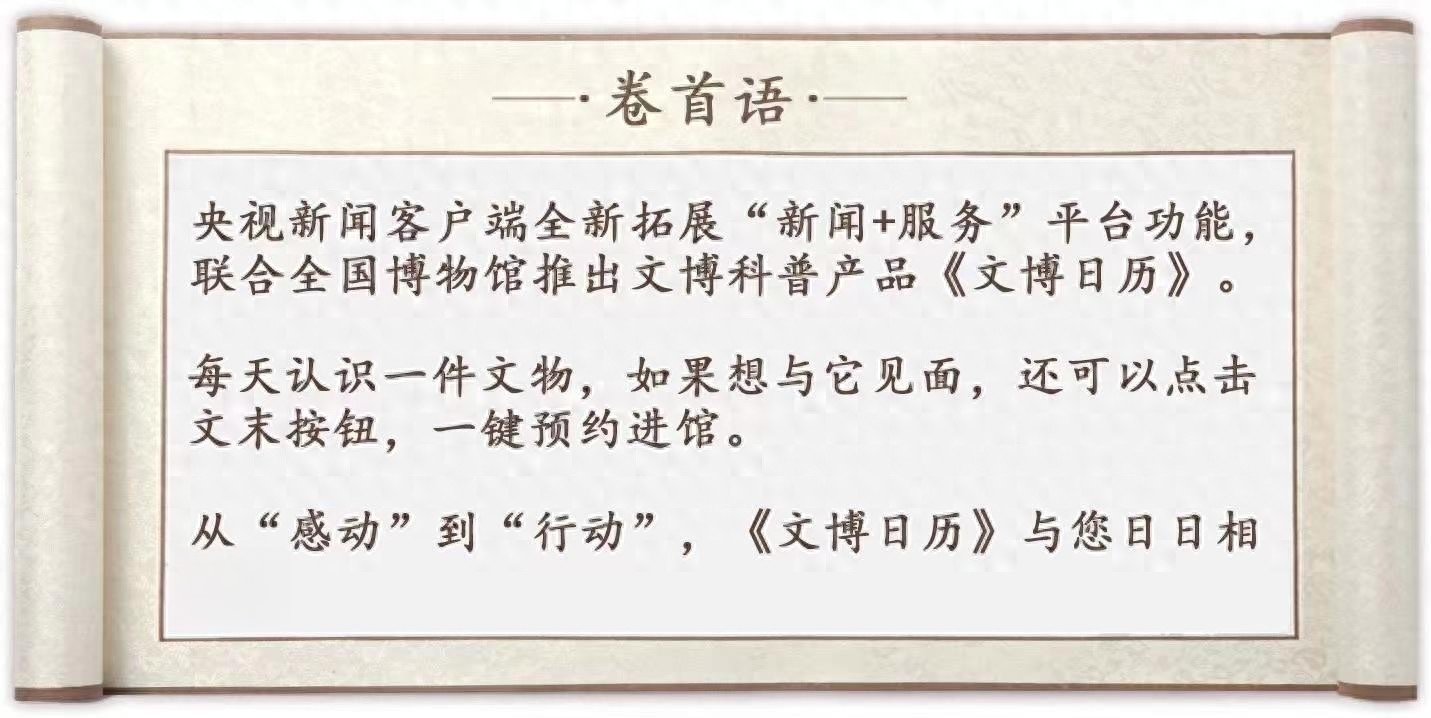 卷首语
央视新闻客户端全新拓展“新闻+服务”平台功能，
联合全国博物馆推出文博科普产品《文博日历》。
每天认识一件文物，如果想与它见面，还可以点击
文末按钮，一键预约进馆。
从“感动”到“行动”，《文博日历》与您日日相